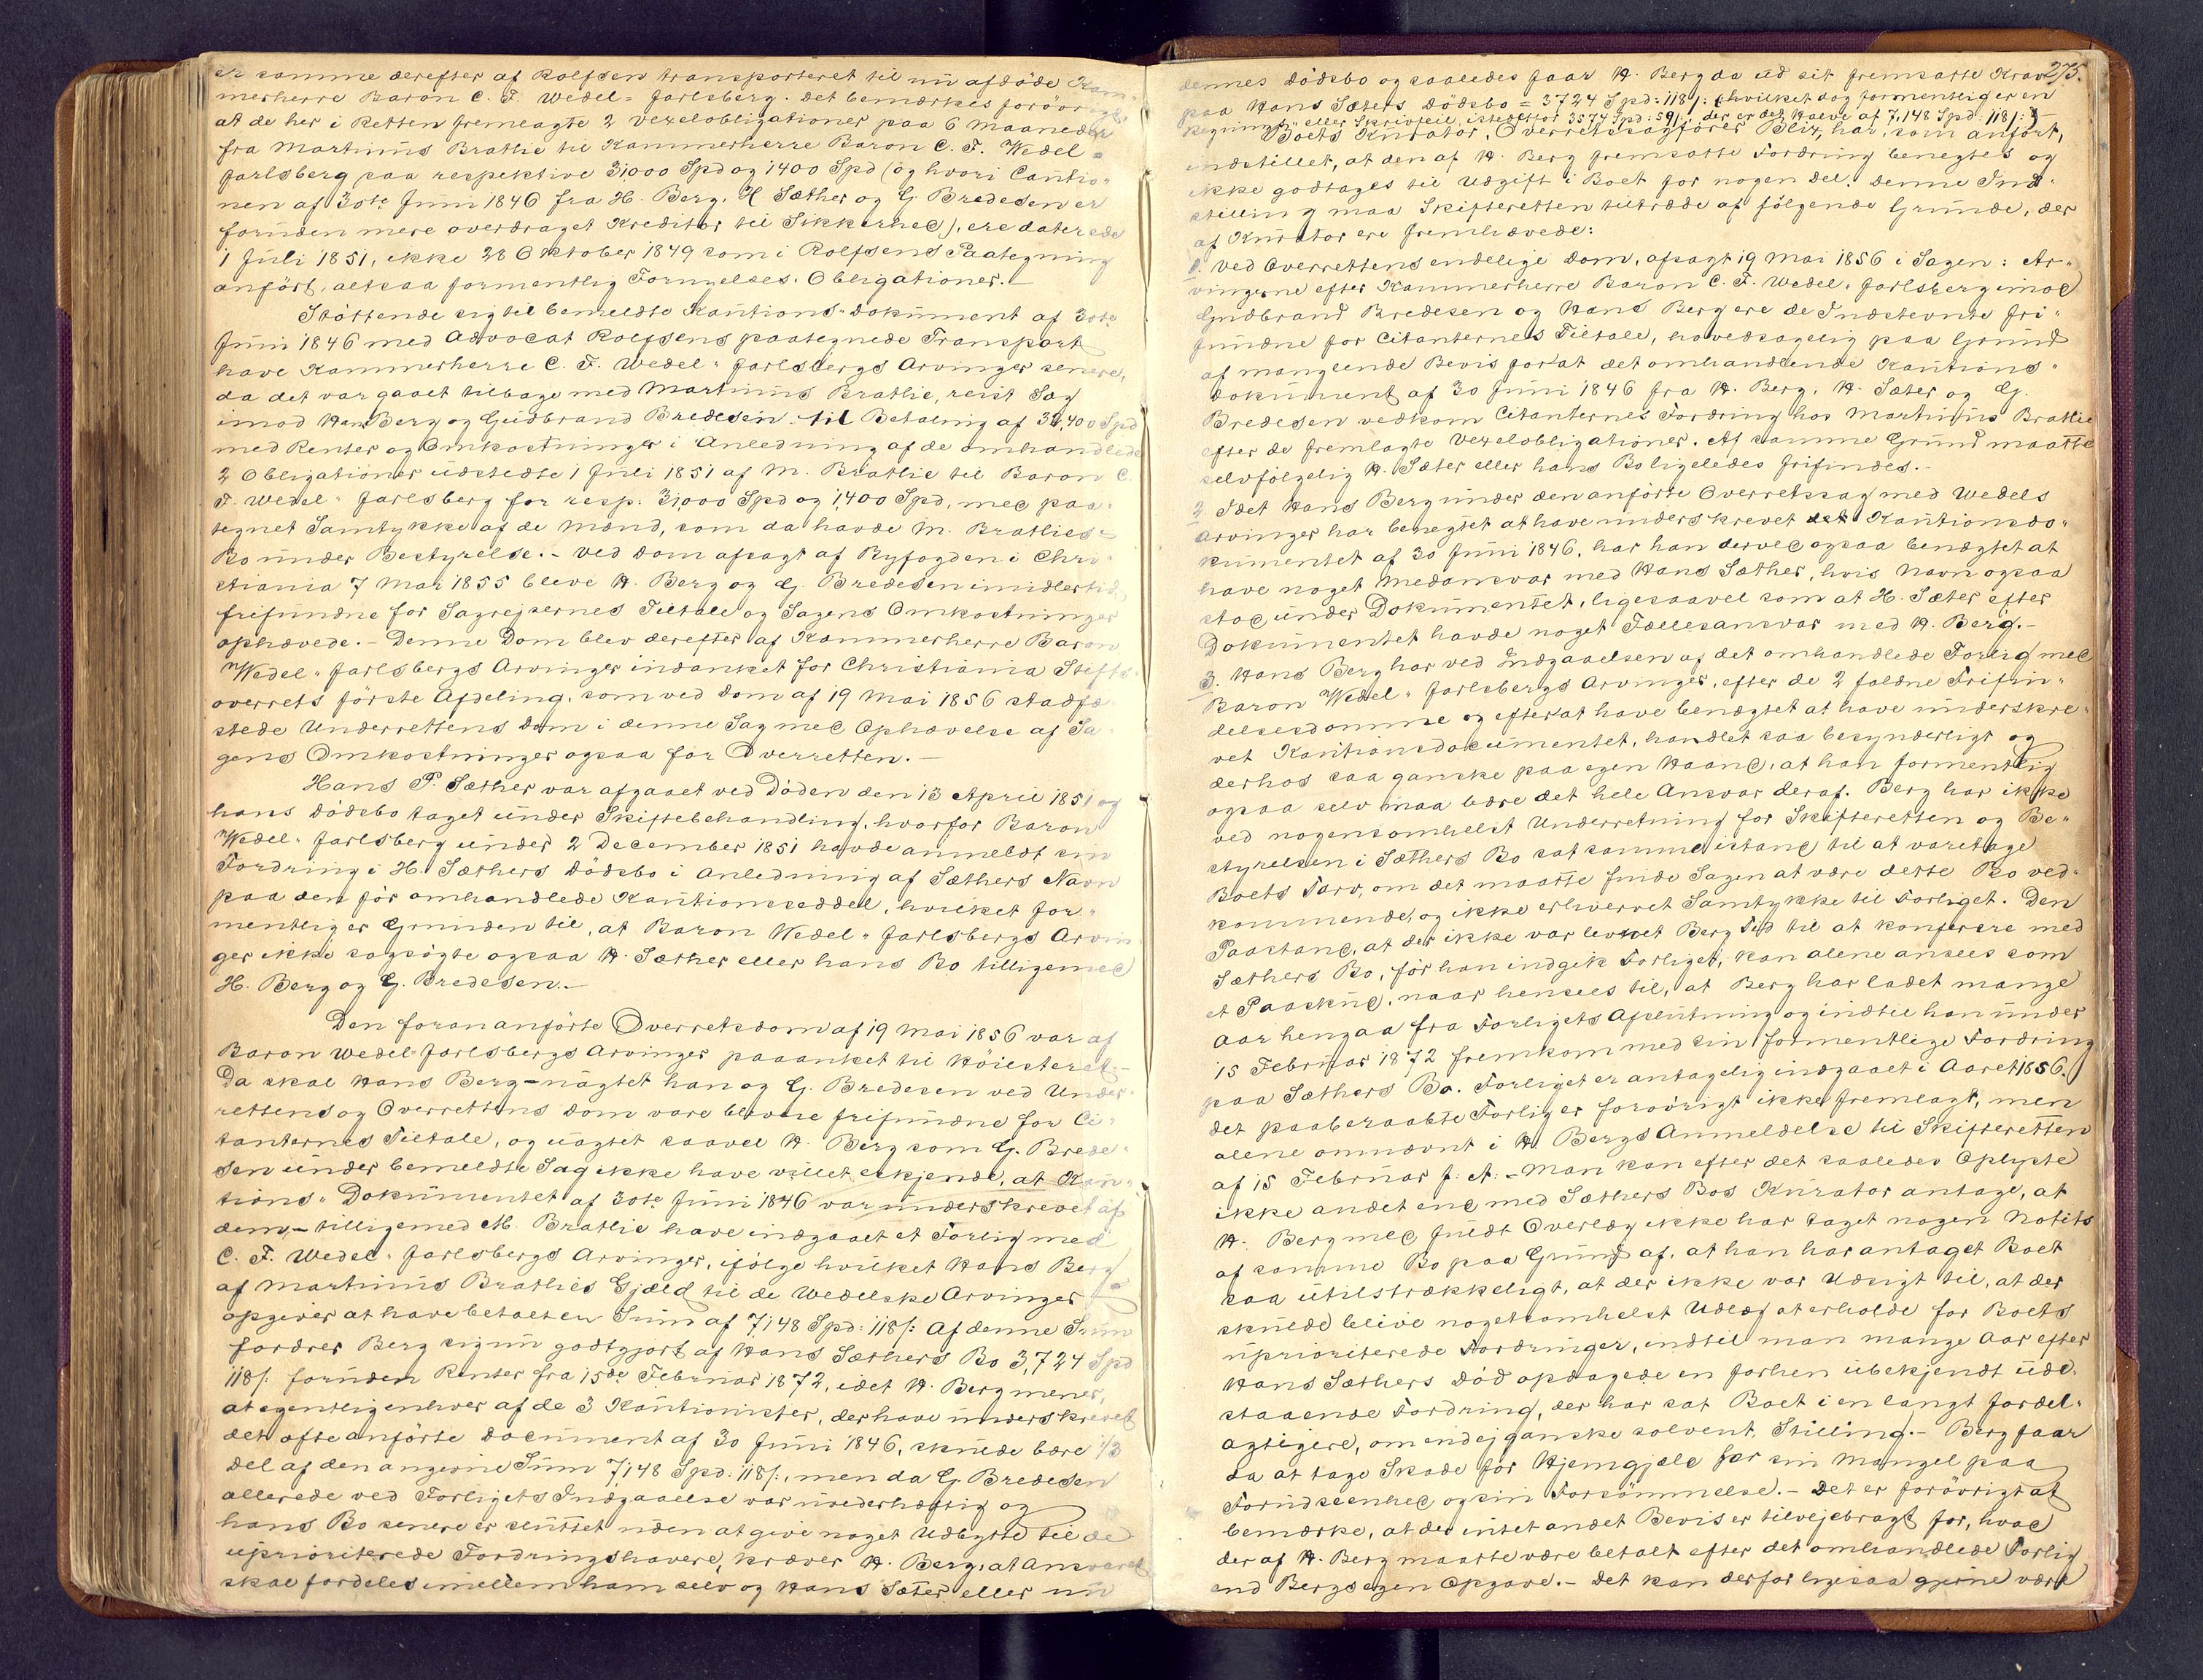 er samme derefter af Rolfsen transporteret til nu afdöde Kam-
merherre Baron C. F. Wedel-Jarlsberg. Det bemærkes forövrigt
at de her i Retten fremlagte 2 Vexelobligationer paa 6 Maaneder
fra Martinus Brathie til Kammerherre Baron C. F. Wedel-
Jarlsberg paa respektive 3,000 Spd og 1400 Spd (og hvori Cautio-
nen af 30te Juni 1846 fra H. Berg, H Sæther og G. Bredesen er
foruden mere overdraget Kreditor til Sikkerhed), ere daterede
1 Juli 1851, ikke 28 Oktober 1849 som i Rolfsens Paategning
anfört, altsaa formentlig Fornyelses-Obligationer.-
Stöttende sig til bemeldte Kautions-Dokument af 30te
Juni 1846 med Advocat Rolfsens paategnede Transport
have Kammerherre C. F. Wedel-Jarlsbergs Arvinger senere,
da det var gaaet tilbage med Martinus Brathie, reist Sag
imod Hans Berg og Gudbrand Bredesen til Betaling af 34,400 Spd
med Renter og Omkostninger i Anledning af de omhandlede
2 Obligationer udstedte 1 Juli 1851 af M. Brathie til Baron C.
F. Wedel-Jarlsberg for resp: 3,000 Spd og 1,400 Spd, med paa-
tegnet Samtykke af de Mænd, som da havde M. Brathies
Bo under Bestyrelse.- Ved Dom afsagt af Byfogden i Chri-
stiania 7 Mar 1855 bleve H. Berg og G. Bredesen imidlertid
frifundne for Sagsøgernes Tiltale og Sagens Omkostninger
ophævede.- Denne Dom blev derefter af Kammerherre Baron
Wedel-Jarlsbergs Arvinger indanket for Christiania Stifts-
overrets förste Afdeling, som ved Dom af 19 Mai 1856 stadfæ-
stede Underrettens Dom i denne Sag med Ophævelse af Sa-
gens Omkostninger ogsaa for Overretten.-
Hans P. Sæther var afgaaet ved Döden den 13 April 1851 og
hans Dödsbo taget under Skiftebehandling, hvorfor Baron
Wedel-Jarlsberg under 2 December 1851 havde anmeldt sin
Fordring i H. Sæthers Dödsbo i Anledning af Sæthers Navn
paa den för omhandlede Kautionsseddel, hvilket for-
mentlig er Grunden til, at Baron Wedel-Jarlsbergs Arvin-
ger ikke sagsögte ogsaa H. Sæther eller hans Bo tilligemed
H. Berg og G. Bredesen.-
Den foran anförte Overretsdom af 19 Mai 1856 var af
Baron Wedel-Jarlsbergs Arvinger paaanket til Höiesteret.-
Da skal Hans Berg - uagtet han og G. Bredesen ved Under-
rettens og Overrettens Dom vare blevne frifundne for Ci-
tanternes Tiltale, og uagtet saavel H. Berg som G. Brede-
sen under bemeldte Sag ikke have villet erkjende, at Kau-
tions-Dokumentet af 30te Juni 1846 var underskrevet af
dem - tilligemed M. Brathie have indgaaet et Forlig med
C. F. Wedel-Jarlsbergs Arvinger, ifölge hvilket Hans Berg
af Martinus Brathies Gjæld til de Wedelske Arvinger
opgiver at have betalt en Sum af 7,148 Spd: 118/: Af denne Sum
fordrer Berg sig nu godtgjort af Hans Sæthers Bo 3,724 Spd
118/: foruden Renter fra 15de Februar 1872, idet H. Berg mener,
at egentlig enhver af de 3 Kautionister, der have underskrevet
det ofte anförte Document af 30 Juni 1846, skulde bære 1/3
Del af den angivne Sum 7,148 Spd: 118/:, men da G. Bredesen
allerede ved Forligets Indgaaelse var uvederhæftig og
hans Bo senere er sluttet uden at give noget Udbytte til de
uprioriterede Fordringshavere, kræver H. Berg, at Ansvaret
skal fordeles imellem ham selv og Hans Sæter eller nu
275.
dennes Dödsbo og saaledes faar H. Berg da ud sit fremsatte Krav
paa Hans Sæters Dödsbo = 3724 Spd: 118/: (hvilket dog formentlig er en
Regnings- eller Skrivfeil, istedetfor 3574 Spd: 59/:, der er det Halve af 7,148 Spd: 118/:)-
Boets Kurator, Overretssagförer Blix, har, som anfört,
indstillet, at den af H. Berg fremsatte Fordring benegtes og
ikke godtages til Udgift i Boet for nogen Del. Denne Ind-
stilling maa Skifteretten tiltræde af fölgende Grunde, der
af Kurator ere fremhævede:
1. Ved Overrettens endelige Dom, afsagt 19 Mai 1856 i Sagen: Ar-
vingerne efter Kammerherre Baron C. F. Wedel-Jarlsberg imod
Gudbrand Bredesen og Hans Berg ere de Indstevnte fri-
fundne for Citanternes Tiltale, hovedsagelig paa Grund
af manglende Bevis for at det omhandlende Kautions-
dokument af 30 Juni 1846 fra H. Berg, H. Sæter og G.
Bredesen vedkom Citanternes Fordring hos Martinus Brathie
efter de fremlagte Vexelobligationer. Af samme Grund maatte
selvfölgelig H. Sæter eller hans Bo ligeledes frifindes.-
2. Idet Hans Berg under den anförte Overretssag med Wedels
Arvinger har benegtet at have underskrevet det Kautionsdo-
kumentet af 30 Juni 1846, har han derved ogsaa benægtet at
have noget Medansvar med Hans Sæther, hvis Navn ogsaa
stod under Dokumentet, ligesaavel som at H. Sæter efter
Dokumentet havde noget Fællesansvar med H. Berg.-
3. Hans Berg har ved Indgaaelsen af det omhandlede Forlig med
Baron Wedel-Jarlsbergs Arvinger, efter de 2 faldne Frifin-
delsesdomme og efterat have benægtet at have underskre-
vet Kautionsdocumentet, handlet saa besynderligt og
derhos saa ganske paa egen Haand, at han formentlig
ogsaa selv maa bære det hele Ansvar deraf. Berg har ikke
ved nogensomhelst Underretning for Skifteretten og Be-
styrelsen i Sæthers Bo sat samme istand til at varetage
Boets Tarv, om det maatte finde Sagen at være dette Bo ved-
kommende, og ikke erhvervet Samtykke til Forliget. Den
Paastand, at der ikke var levnet Berg Tid til at konferere med
Sæthers Bo, för han indgik Forliget, kan alene ansees som
et Paaskud, naar hensees til, at Berg har ladet mange
Aar hengaa fra Forligets Afslutning og indtil han under
15 Februar 1872 fremkom med sin formentlige Fordring
paa Sæthers Bo. Forliget er antagelig indgaaet i Aaret 1856.
Det paaberaabte Forlig er forövrigt ikke fremlagt, men
alene omnævnt i H. Bergs Anmeldelse til Skifteretten
af 15 Februar f: A: - Man kan efter det saaledes Oplyste
ikke andet end med Sæthers Bos Kurator antage, at
H. Berg med fuldt Overlæg ikke har taget nogen Notits
af samme Bo paa Grund af, at han har antaget Boet
saa utilstrækkeligt, at der ikke var Udsigt til, at der
skulde blive nogetsomhelst Udlæg at erholde for Boets
uprioriterede Fordringer, indtil man mange Aar efter
Hans Sæthers Död opdagede en forhen ubekjendt ude-
staaende Fordring, der har sat Boet i en langt fordel-
agtigere, om endej ganske solvent, Stilling.- Berg faar
da at tage Skade for Hjemgjæld for sin Mangel paa
Forudseenhed og sin Forsömmelse.- Det er forövrigt at
bemærke, at der intet andet Bevis er tilvejebragt for, hvad
der af H. Berg maatte være betalt efter det omhandlede Forlig
end Bergs egen Opgave.- Det kan derfor ligesaa gjerne være